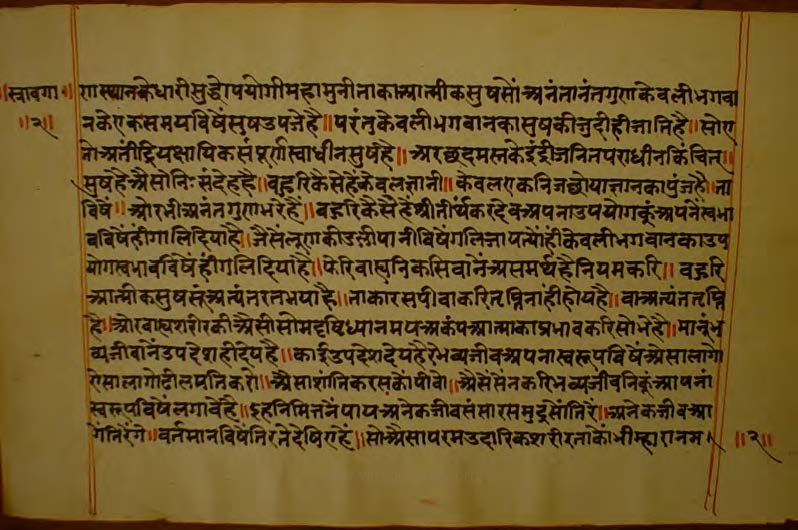 श्रावगा
॥२॥
णास्थानकेधारीसुद्धोपयोगीमहामुनीताकाआत्मीकसुषसेंअनंतानंतगुणाकेवलीभगवा
नकेएकसमयविषेंसुषउपजेहै॥परंतुकेवलीभगवानकासुषकीजुदीहीजातिहै॥सोए
तोअतींद्रियक्षायिकसंपूर्णस्वाधीनसुषहै॥अरछदमस्तकेइंद्रीजनितपराधीनकिंचित॥
सुषहैऐसोनिःसंदेहहै॥बहुरिकैसेहैंकेवलज्ञानी॥केवलएकनिजछोयाज्ञानकापुंजहै॥ता
विषैं॥ओरभीअनंतगुणभरेहैं॥बहुरिकैसेहैंश्रीतीर्थंकरदेवअपनाउपयोगकूंअपनेस्वभा
वविषेंहीगालिदियाहै॥जैसेंलूणकीडलीपानीविषेंगलिजायत्योंहीकेवलीभगवानकाउप
योगस्वभावविषेंहीगलिदियाहै॥फेरिबाह्यनिकसिवानेंअसमर्थहैनियमकरि॥बहुरि
आत्मीकसुषसूंअत्यंतरतभयाहै॥ताकारसपीवाकरितृप्तिनांहीहोयहै॥वाअत्यंततृप्ति
है॥ओरवाह्यशरीरकीऐसीसोमदृष्टिध्यानमयअकंपआत्माकाप्रभावकरिसोभेहै॥मानूंभ
व्यजीवांनेंउपदेशहीदेयहै॥कांईउपदेशदेयहैरेभव्यजीवअपनास्वरूपविषेंऐसालागो
ऐसालागोढीलमतिकरो॥ऐसाशांतिकरसकोंपीवो॥ऐसेंसेंनकरिभव्यजीवनिकूंआपनां
स्वरूपविषेंलगावेहै॥इहनिमित्तनेंपायअनेकजीवसंसारसमुद्रसोंतिरें॥अनेकजीवआ
गेंतिरेंगे॥वर्तमानविषेंतिरतेदेषिएहें॥सोऐसापरमउदारिकशरीरताकोंभीम्हारानम
॥२॥